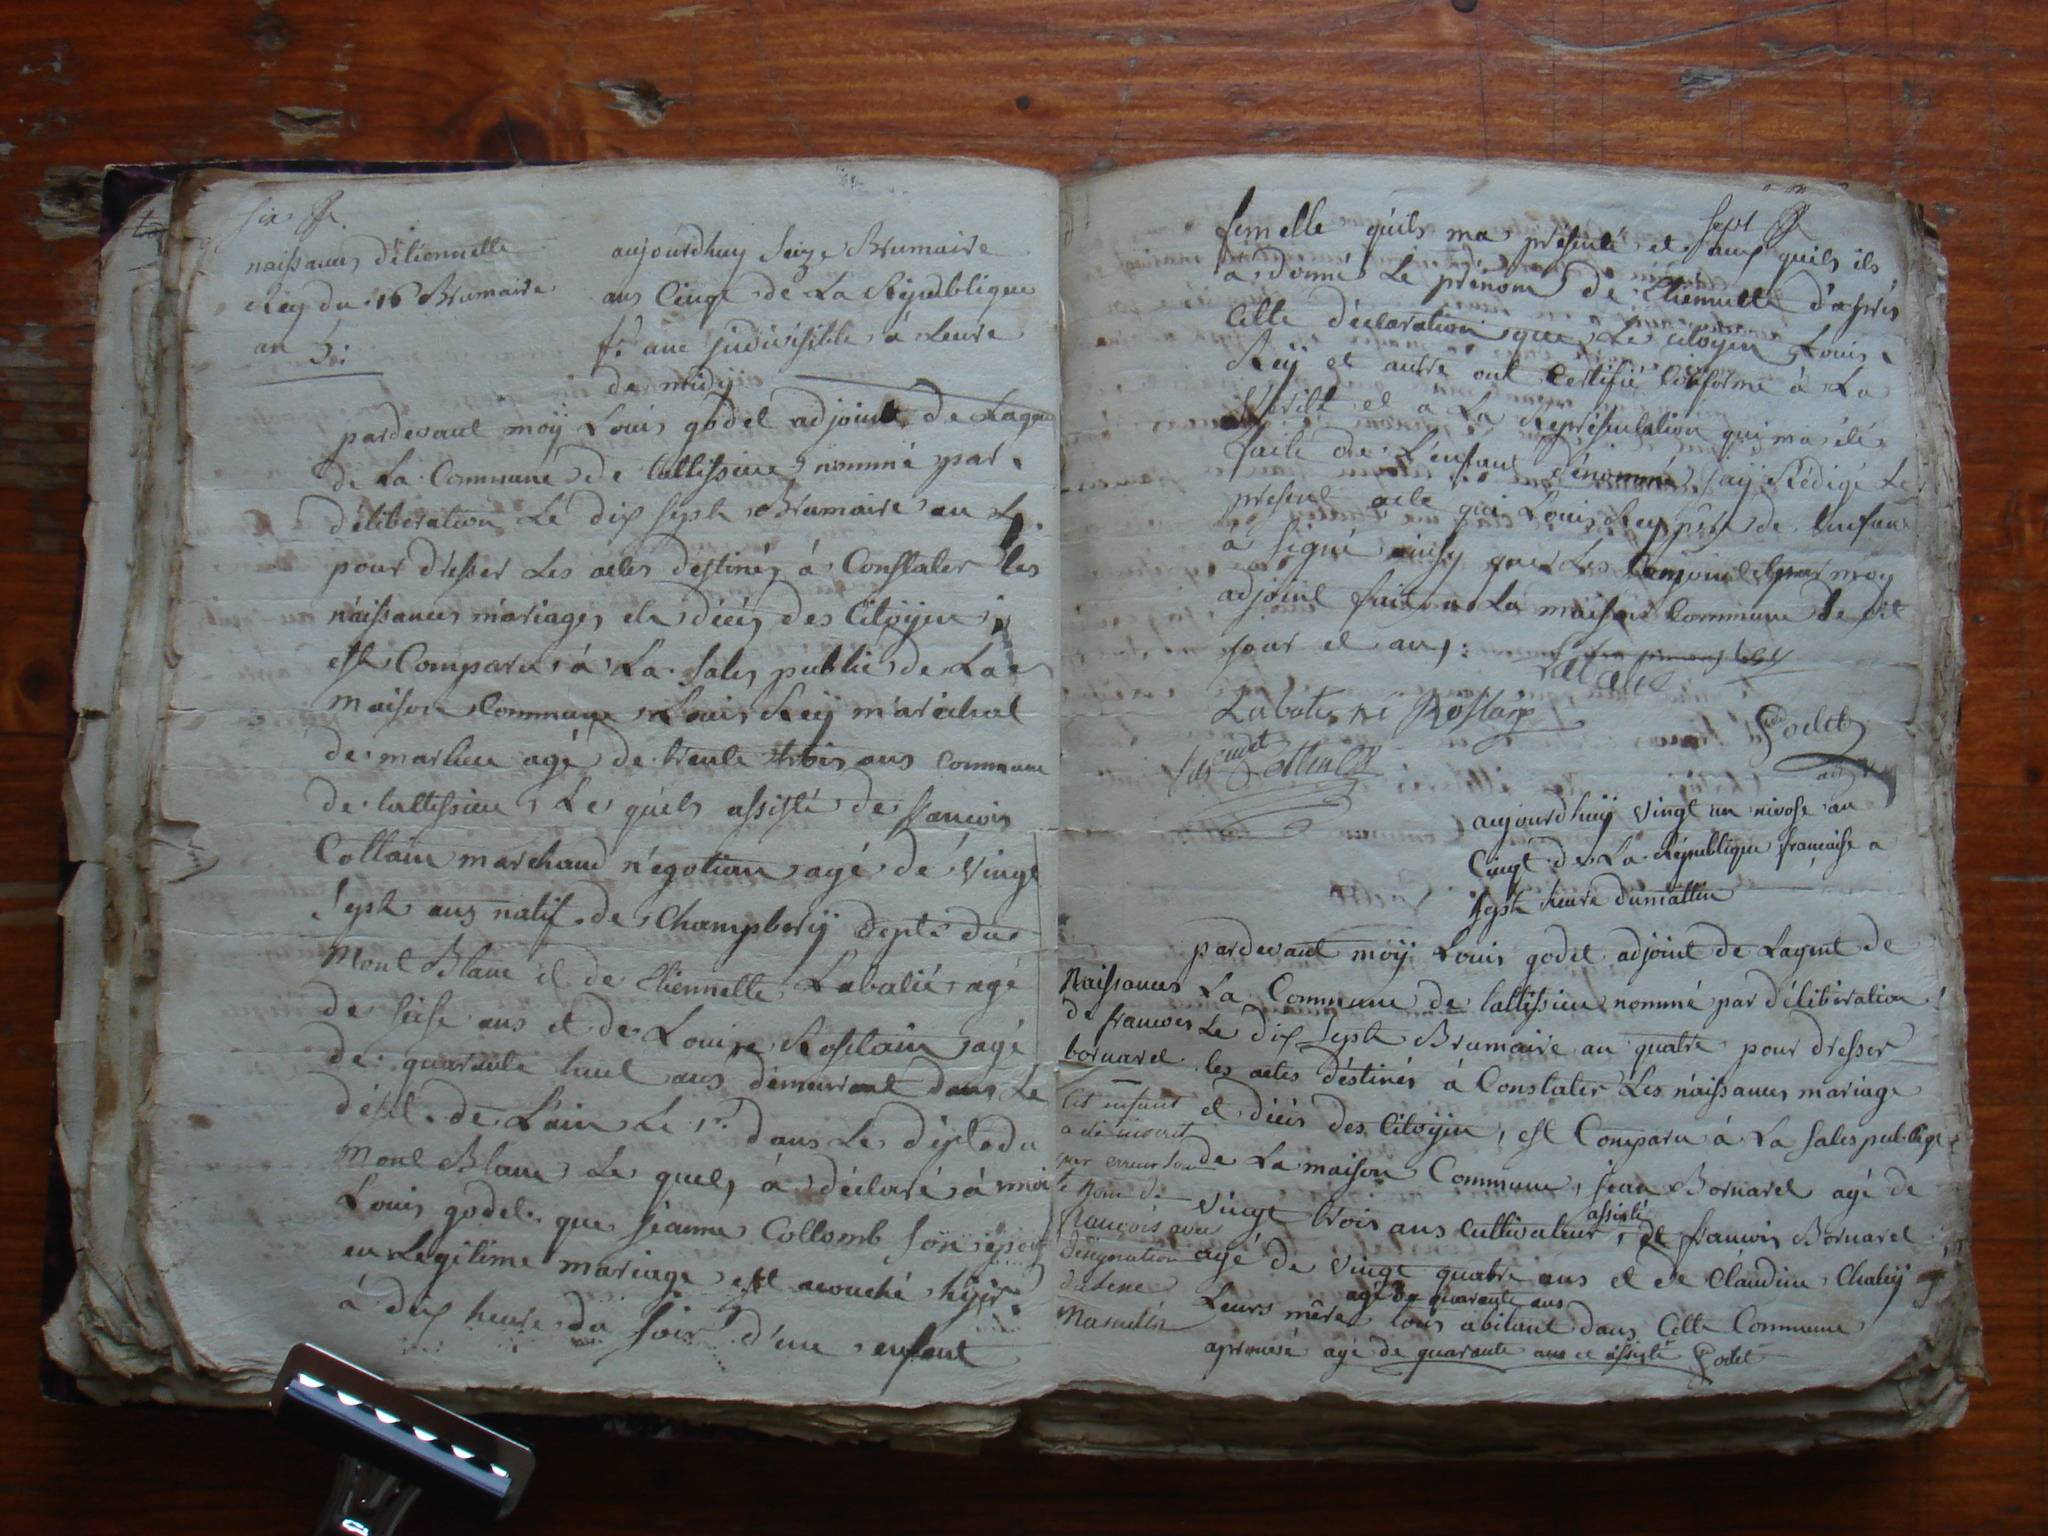 six
naissances d'étiennette
Rey du 16 Brumaire
an 5:
aujourdhuy seize Brumaire
ans Cinqt de La République
f.e une indivisible à Leure
de midÿ
pardevant moÿ Louis godet adjoint de Lagen
de La Commune de tallissieu nommé par
déliberation Lé dix septe Brumaire an 4.
pour dresser Les actes destinés à Constater les
naissances mariages et décés des Citoÿen
est Comparu à La Sales public de La
maison Commune Louis Reÿ maréchal
de marlieu agé de trente trois ans commune
de tallissieu, Le quels assisté de francois
Collain marchand négotian agé de vingt
septe ans natif de Champberÿ depté du
Mont Blanc et de Etiennette Labatié agé
de seise ans et de Louise Rostain agé
de quarante huit ans démeurant dans Le
dépt. de L'ain Le 1.r dans Le dépt du
Mont Blanc Le quel, à déclaré à moi
Louis godet que jeanne Collomb son épouse
en Legitime mariage est acouché hÿer
à dix heure du soir d'une enfant
sept
femelle quils ma présenté et aux quels ils
à donné Le prénom de Etiennette d'après
Cette déclaration que Le citoyen Louis
Reÿ et autre ont Certifié Conforme à La
Vérité et a La Représentation qui ma été
faite de L'enfant dénommé jay Rédigé Le
present acte qui Louis Rey père de Lenfant
à signé ainsy que Les moy
adjoint fait a La maison Commune De dit
jour et ans:
Rostaing
Godet
adj
aujourdhuÿ vingt un nivose an
Cinqt de La République francaise a
septe heure dumattin
pardevant moÿ Louis godet adjoint de Lagent de
La Commune de tallissieu nommé par déliberation
Le dix septe Brumaire an quatre pour dresser
les actes déstinés à Constater Les naissances mariage
et décés des Citoÿen, est Comparu à La Sales publiqe
de La maison Commune, jean Bornarel agé de
vingt trois ans cultivateur, assisté de francois Bornarel
agé de vingt quatre ans et de Claudine Chaley
agé de quarante ans
Leurs mère tous abitant dans Cette Commune
aprouvé agé de quarante ans et assisté Godet
Naissances
de francois
bornarel
Cet enfant
a été inscrit
par erreur sous
le Nom de
François avec
dénomination
de sexe
Masculin